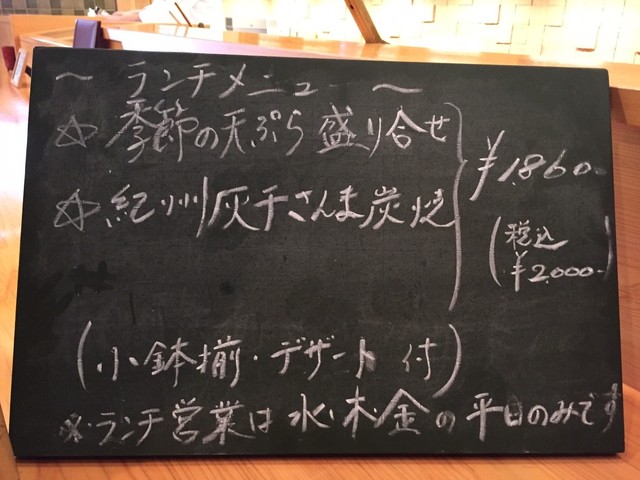 ～ ランチメニュー ～
☆ 季節の天ぷら盛り合せ
☆ 紀州灰干さんま炭焼
¥1.860-
(税込
¥2.000-)
(小鉢揃・デザート付)
※ランチ営業は水・木・金の平日のみです